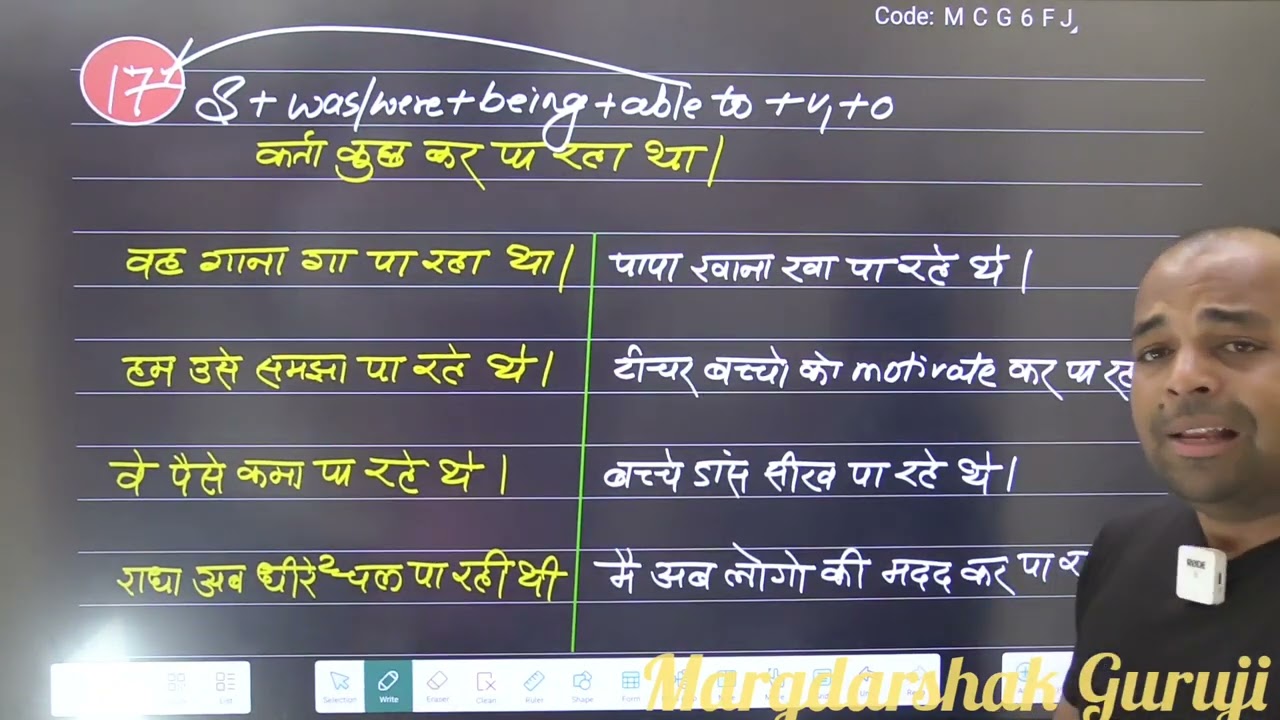 Code: M C G 6 F J
17
S + was/were + being + able to + v1 + o
कर्ता कुछ कर पा रहा था।
वह गाना गा पा रहा था।
हम उसे समझा पा रहे थे।
वे पैसे कमा पा रहे थे।
राधा अब धीरे2 चल पा रही थी
पापा खाना खा पा रहे थे।
टीचर बच्चो को motivate कर पा
बच्चे डांस सीख पा रहे थे।
मै अब लोगो की मदद कर पा
Selection Write Eraser Clean Ruler Shape Form
List
Margdarshak Guruji